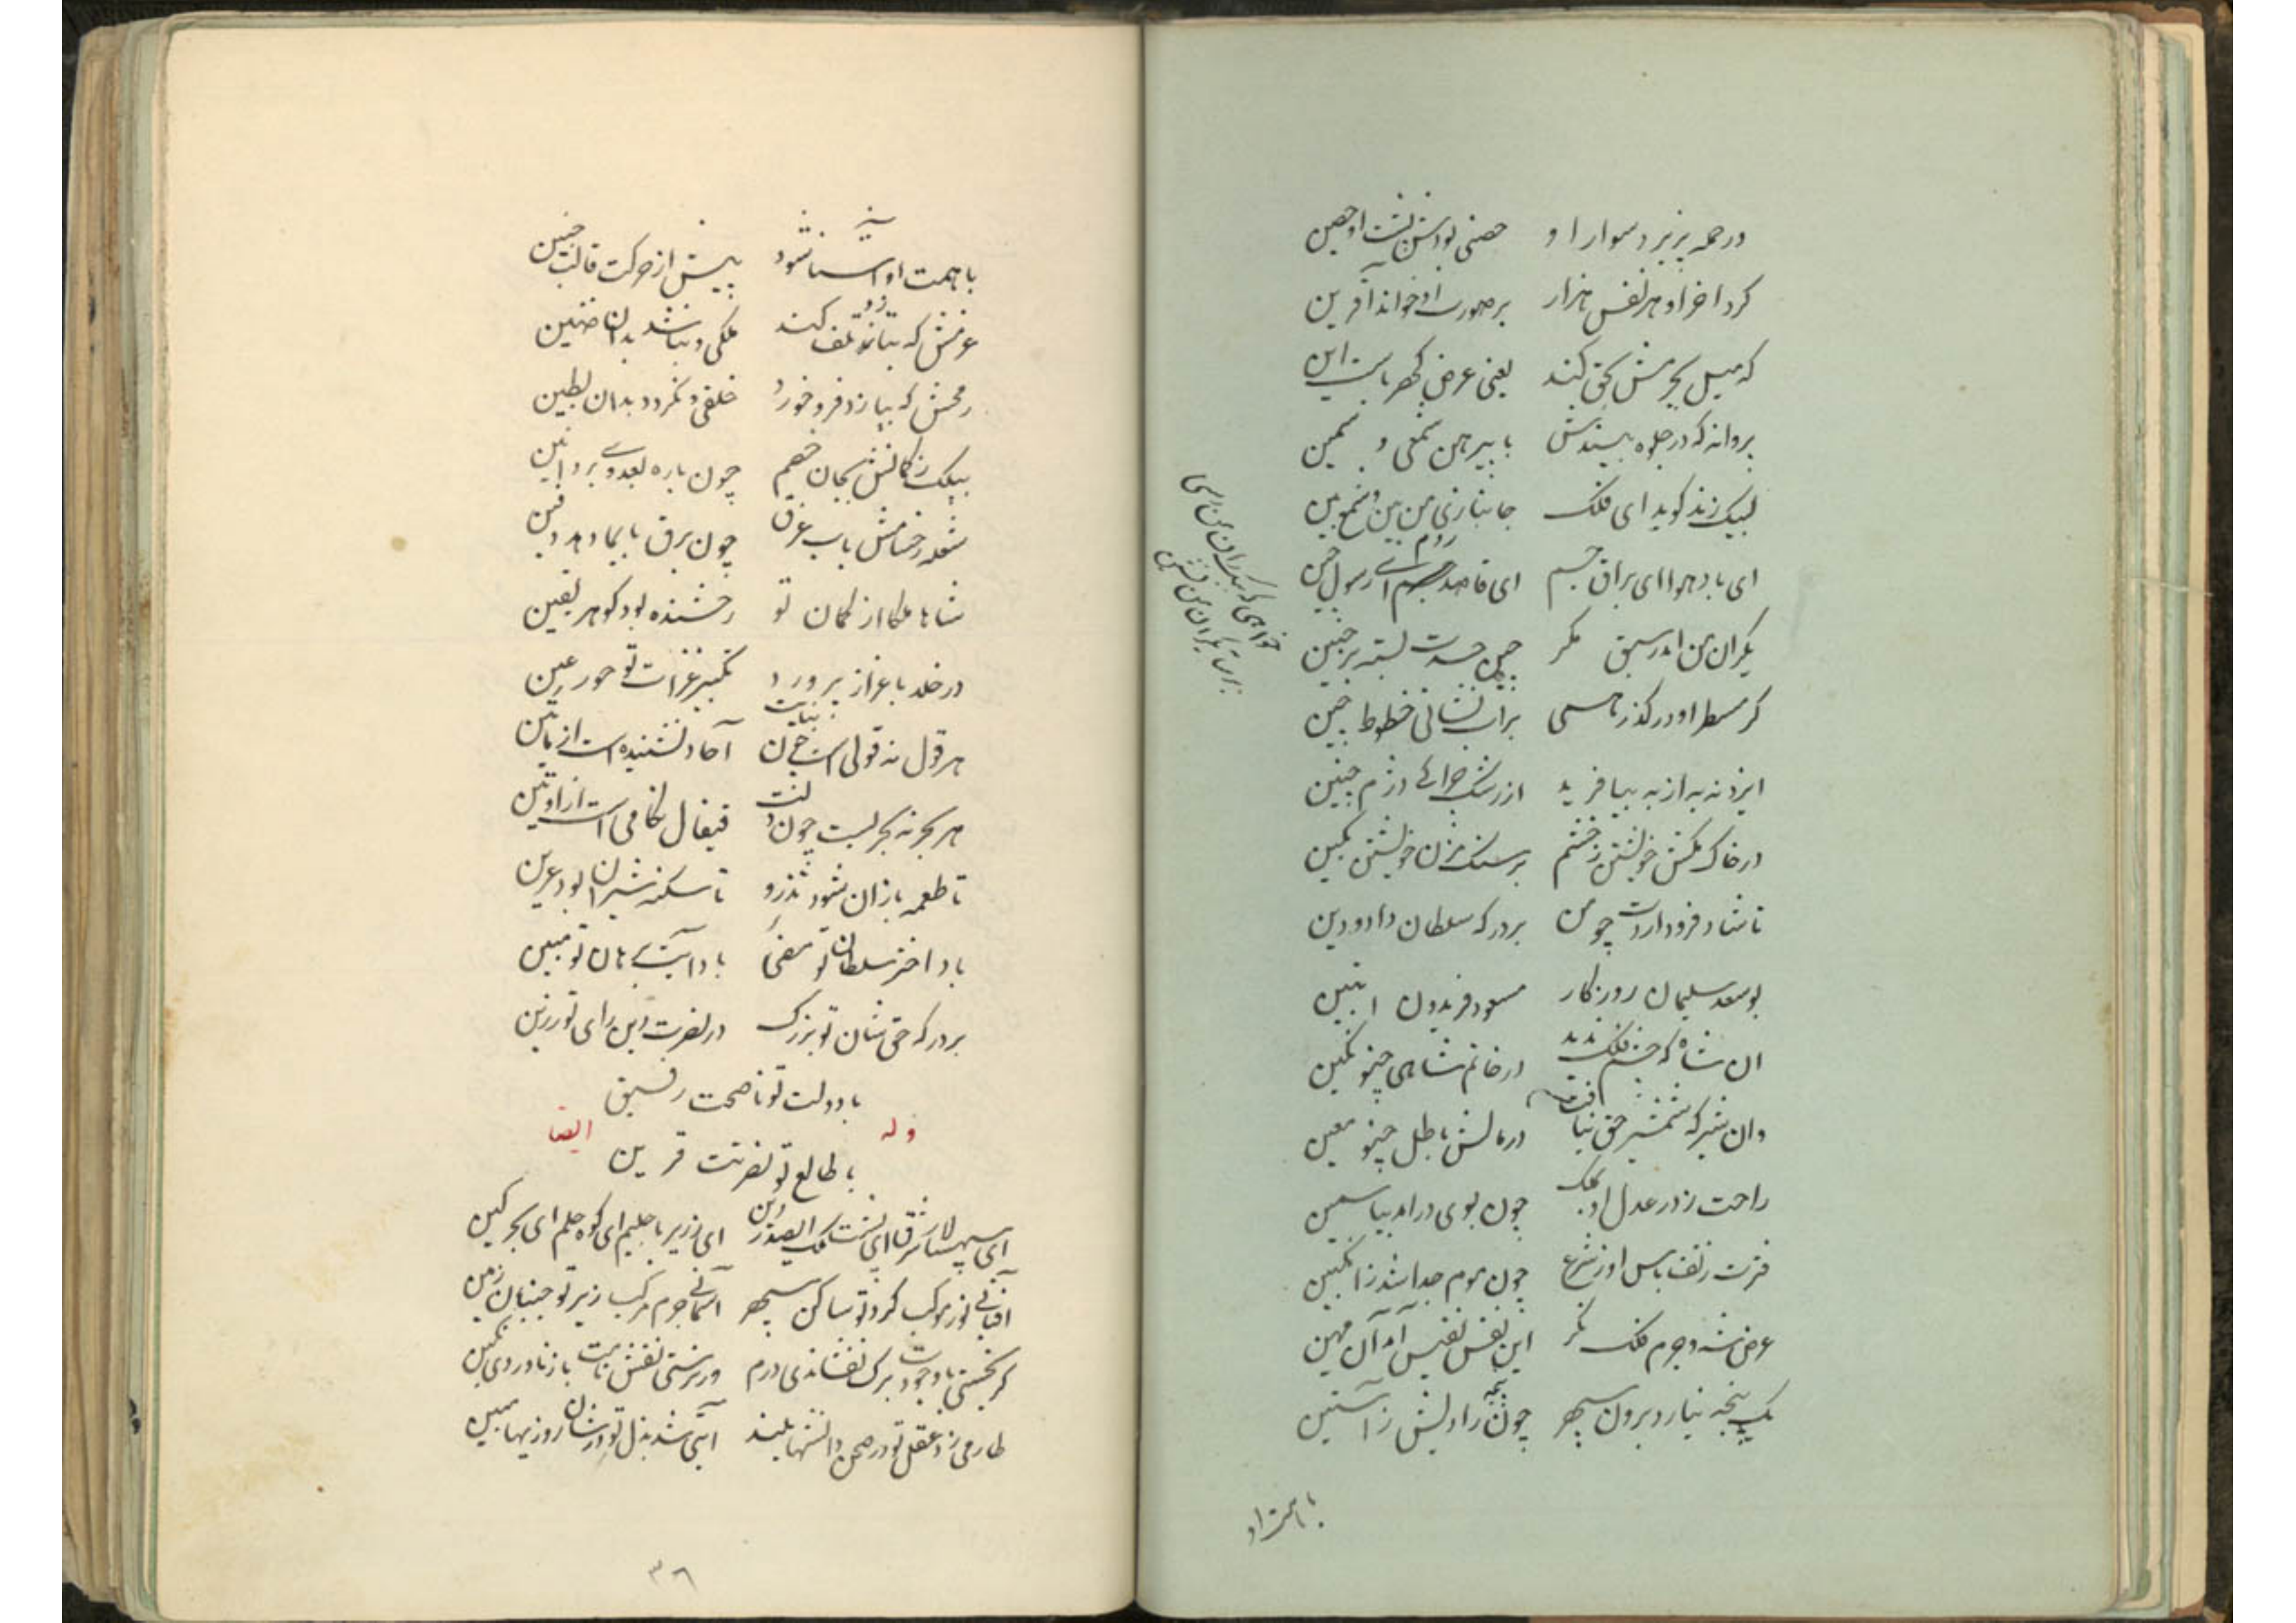 در حمله پذیرد سوار او حصنی بود از پشت او حصین
کرد اخر او هر نفس هزار بر صورت او خواند آفرین
که میل بجرمش کجی کند یعنی عرض کهرباست این
پروانه که در جلوه بیندش با پیرهن شمعی و سمین
لبیک زند گوید ای فلک جانبازی من بین و شمع بین
ای باد هوا ای براق جسم ای قاصد روم ای رسول چین
یکران من اندر سبق مگر چین حسدت بسته بر جبین
کز مسطر او در گذر همی براب نشانی خطوط چین
ایزد نه به از به بیافرید از رشک چرائی دژم چنین
در خاک مکش خویشتن ز خشم بر سنگ مزن خویشتن بکین
تا شاد فرود اردت چو من بر درگه سلطان داد و دین
بوسعد سلیمان روزگار مسعود فریدون ابتین
ان شاه که چشم فلک ندید در خاتم شاهی چنو نگین
وان شیر که شمشیر حق نیافت در مالش باطل چنو معین
راحت زدر عدل او بملک چون بوی درامد بیاسمین
فترت زتف باس او ز شرع چون موم جدا شد ز انگبین
عرض شه و جرم فلک نگر این نفس نفیس آمد آن مهین
یک پنجه نیارد برون سپهر چون پنجه رادیش ز آستین
با همت او
با همت او آشنا شود پیش از حرکت قالب جنین
عزمش که بتازد و تلف کند ملکی و نباشد بدان ضنین
رمحش که بیازد فرو خورد خلقی و نگردد بدان بطین
پیلک ز کمانش بجان خصم چون باره بعدوی برد انین
شعله ز حسامش باب غرق چون برق بایما دهد دفین
شاها ملکا از کمان تو رخشنده بود گوهر یقین
در خلد با عزاز پرورد تکبیر غزات تو حور عین
هر قول نه قولی است چون نبات آحاد نشنیده است از
هر بحر نه بحریست چون کفت قیفال
تا طعمه بازان شود تذرو تا مسکن شیران بود عرین
باد اختر سلطان تو مضی باد آیت برهان تو مبین
بر درگه حق شان تو بزرگ در نصرت دین رای تو رزین
با دولت تو ناصحت رفیق
وله ایضا
با طالع تو نصرتت قرین
ای سپهسالار شرق ای پشت ملک ای صدر دین ای نذیر با حلیم ای کوه حلم ای بحر کین
آفتابی نور موکب گرد تو ساکن سپهر آسمانی جرم مرکب زیر تو جنبان زمین
گر نجستی باد جودت برگ نفشاندی درم ور نرستی نقش نامت باز نادردی نگین
طارمی زد عقل تو در صحن دانشها بلند آیتی شد بذل تو در شان روزیها مبین
۳۶